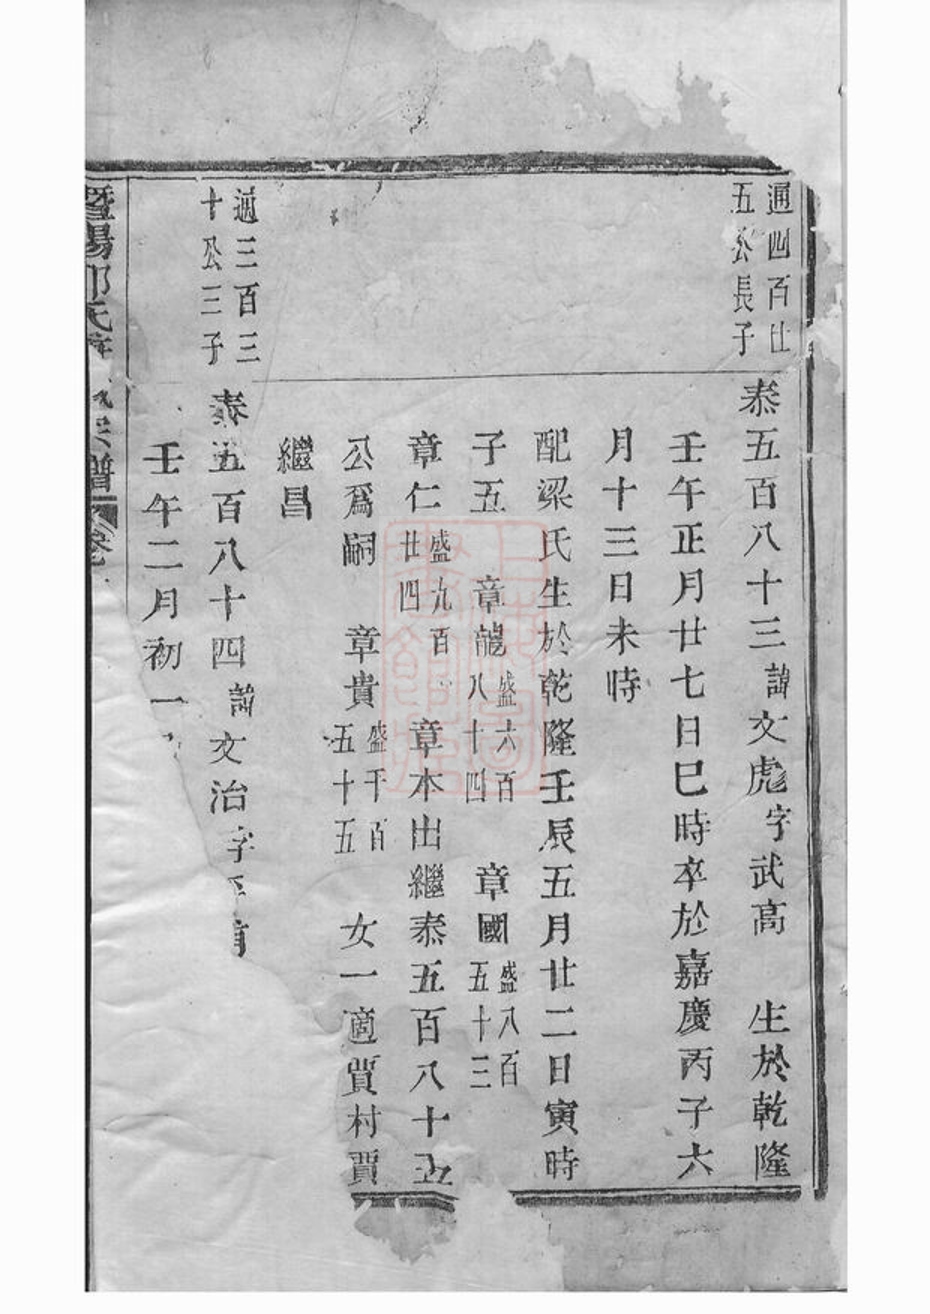 通四百廿
五公長子
泰五百八十三諱文彪字武高　生於乾隆
壬午正月廿七日巳時卒於嘉慶丙子六
月十三日未時
配梁氏生於乾隆壬辰五月廿二日寅時
子五　章龍盛六百八十四　章國盛八百五十三
章仁盛九百廿四　章本出繼泰五百八十五
公爲嗣　章貴盛千百五十五　女一適賈村賈
繼昌
通三百三
十公三子
泰五百八十四諱文治字
壬午二月初一
暨陽邵氏宗譜卷